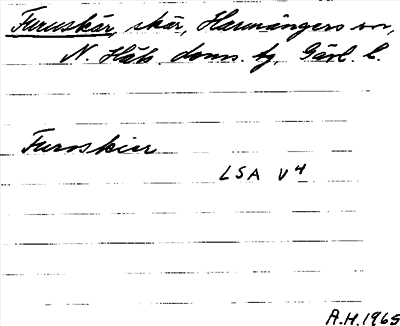 Furuskär, skär, Harmångers sn,
N. Häls doms. bg, Gävl. l.
Furoskier
LSA V 4
A.H. 1965